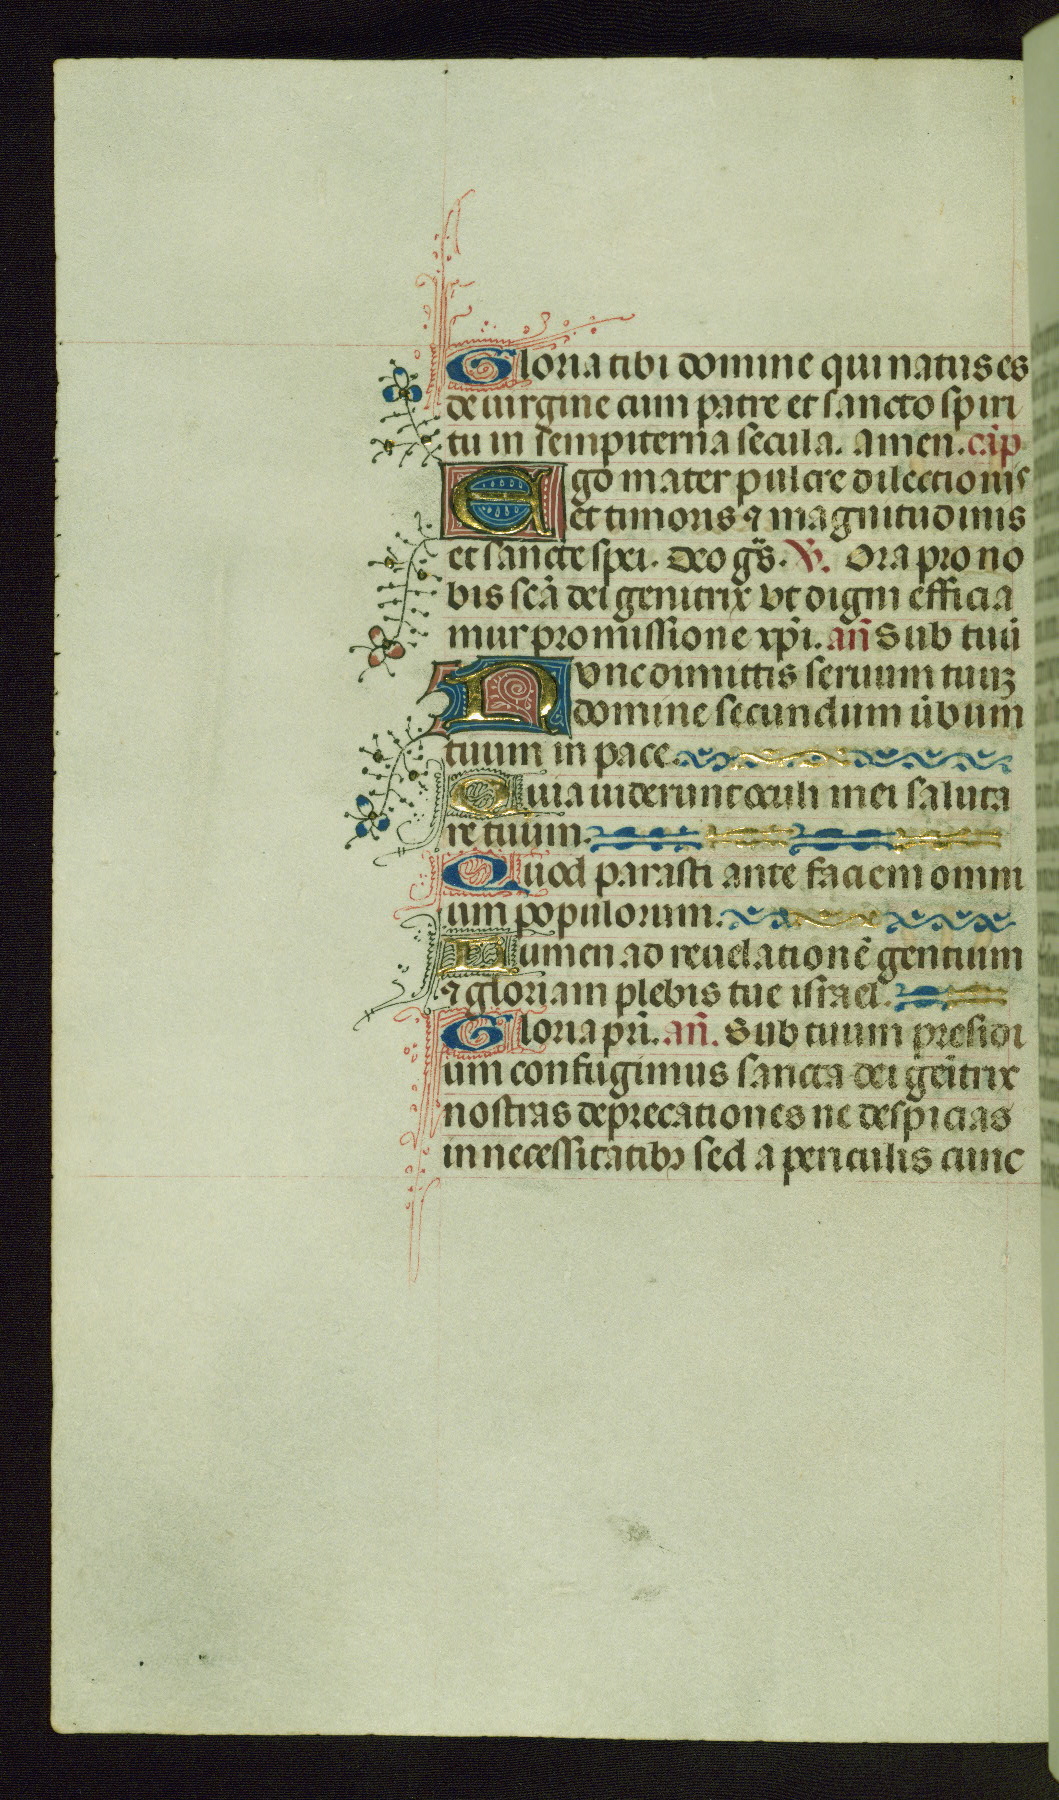 Gloria tibi domine qui natus es
de uirgine cum patre et sancto spiri
tu in sempiterna secula. amen. cap̄
Ego mater pulcre dilectionis
et timoris ⁊ magnitudinis
et sancte spei. Deo gr̄s. V̄. Ora pro no
bis sc̄a dei genitrix vt digni efficia
mur promissione xp̄i. an̄ Sub tuū
Nvnc dimittis seruum tuuꝫ
domine secundum ūbum
tuum in pace.
Quia uiderunt oculi mei saluta
re tuum.
Quod parasti ante faciem omni
um populorum.
Lumen ad reuelationē gentium
⁊ gloriam plebis tue israel.
Gloria pr̄i. an̄. Sub tuum presidi
um confugimus sancta dei geītrix
nostras deprecationes ne despicias
in necessitatibꝫ sed a periculis cunc